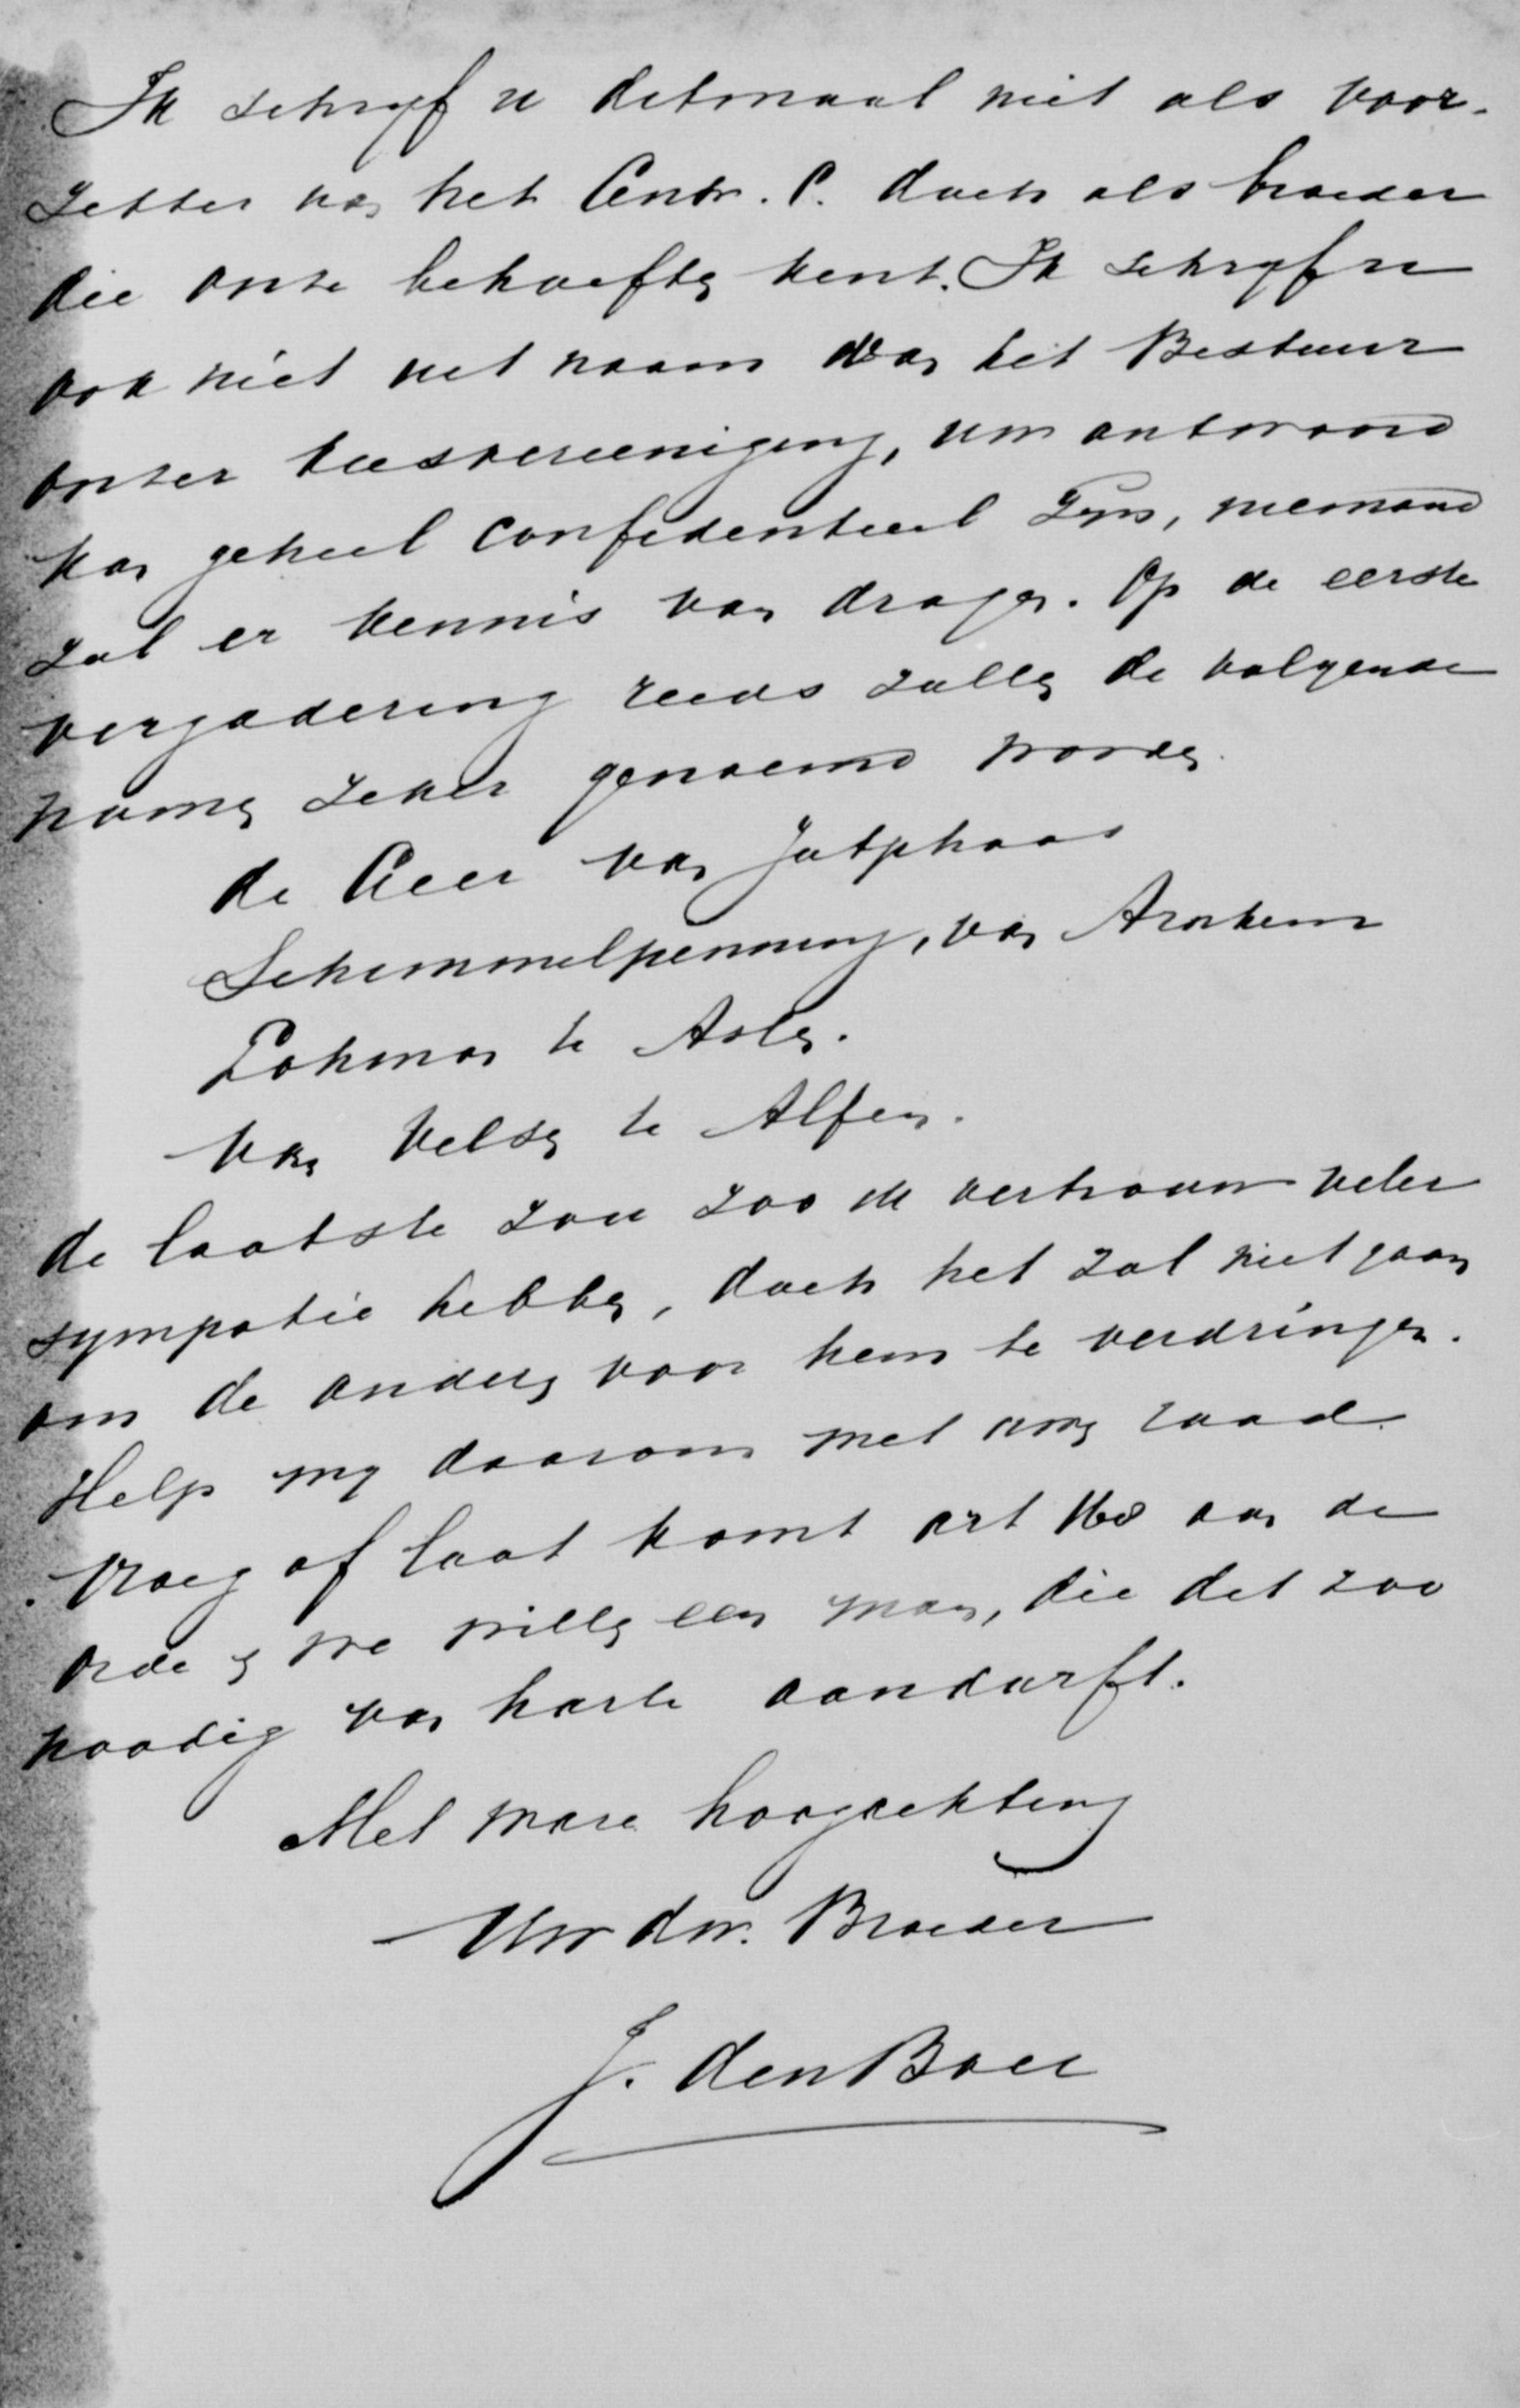 Ik schrijf u ditmaal niet als voor-
zetter van het Centr. C. doch als broeder
die onze behoeften kent. Ik schrijf u
ook niet uit naam van het Bestuur
onzer kiesvereeniging, uw antwoord
kan geheel confidentieel zijn, niemand
zal er kennis van dragen. Op de eerste
vergadering reeds zullen de volgende
namen zeker genoemd worden
de Geer van Jutphaas
Schimmelpenninq, van Arnhem
Lohman te Asten.
van Velsen te Alfen.
de laatste zou zoo ik vertrouw veler
sympatie hebben, doch het zal niet gaan
om de anderen voor hem te verdringen.
Help mij daarom met uwen raad.
Vroeg of laat komt art 168 aan de
orde en we willen een man, die dit zoo
noodig van harte aandurft.
Met ware hoogachting
Uw dw. Broeder
J. den Boer